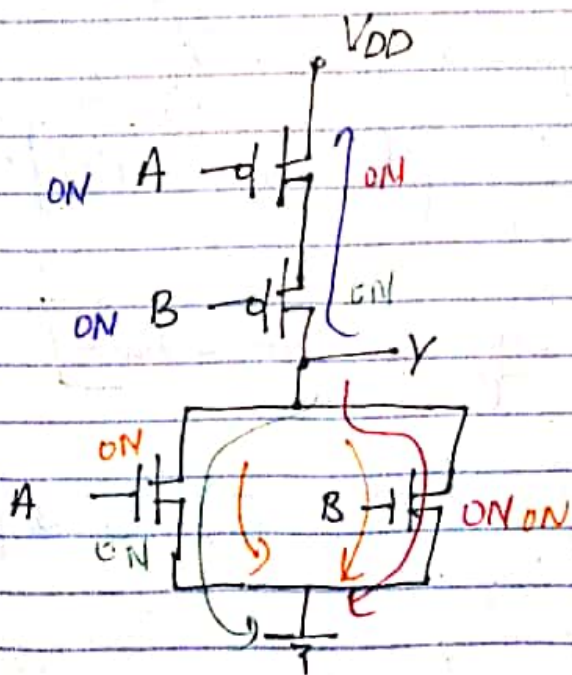 VDD
ON A ON
ON B ON
Y
ON
A B ON ON
ON